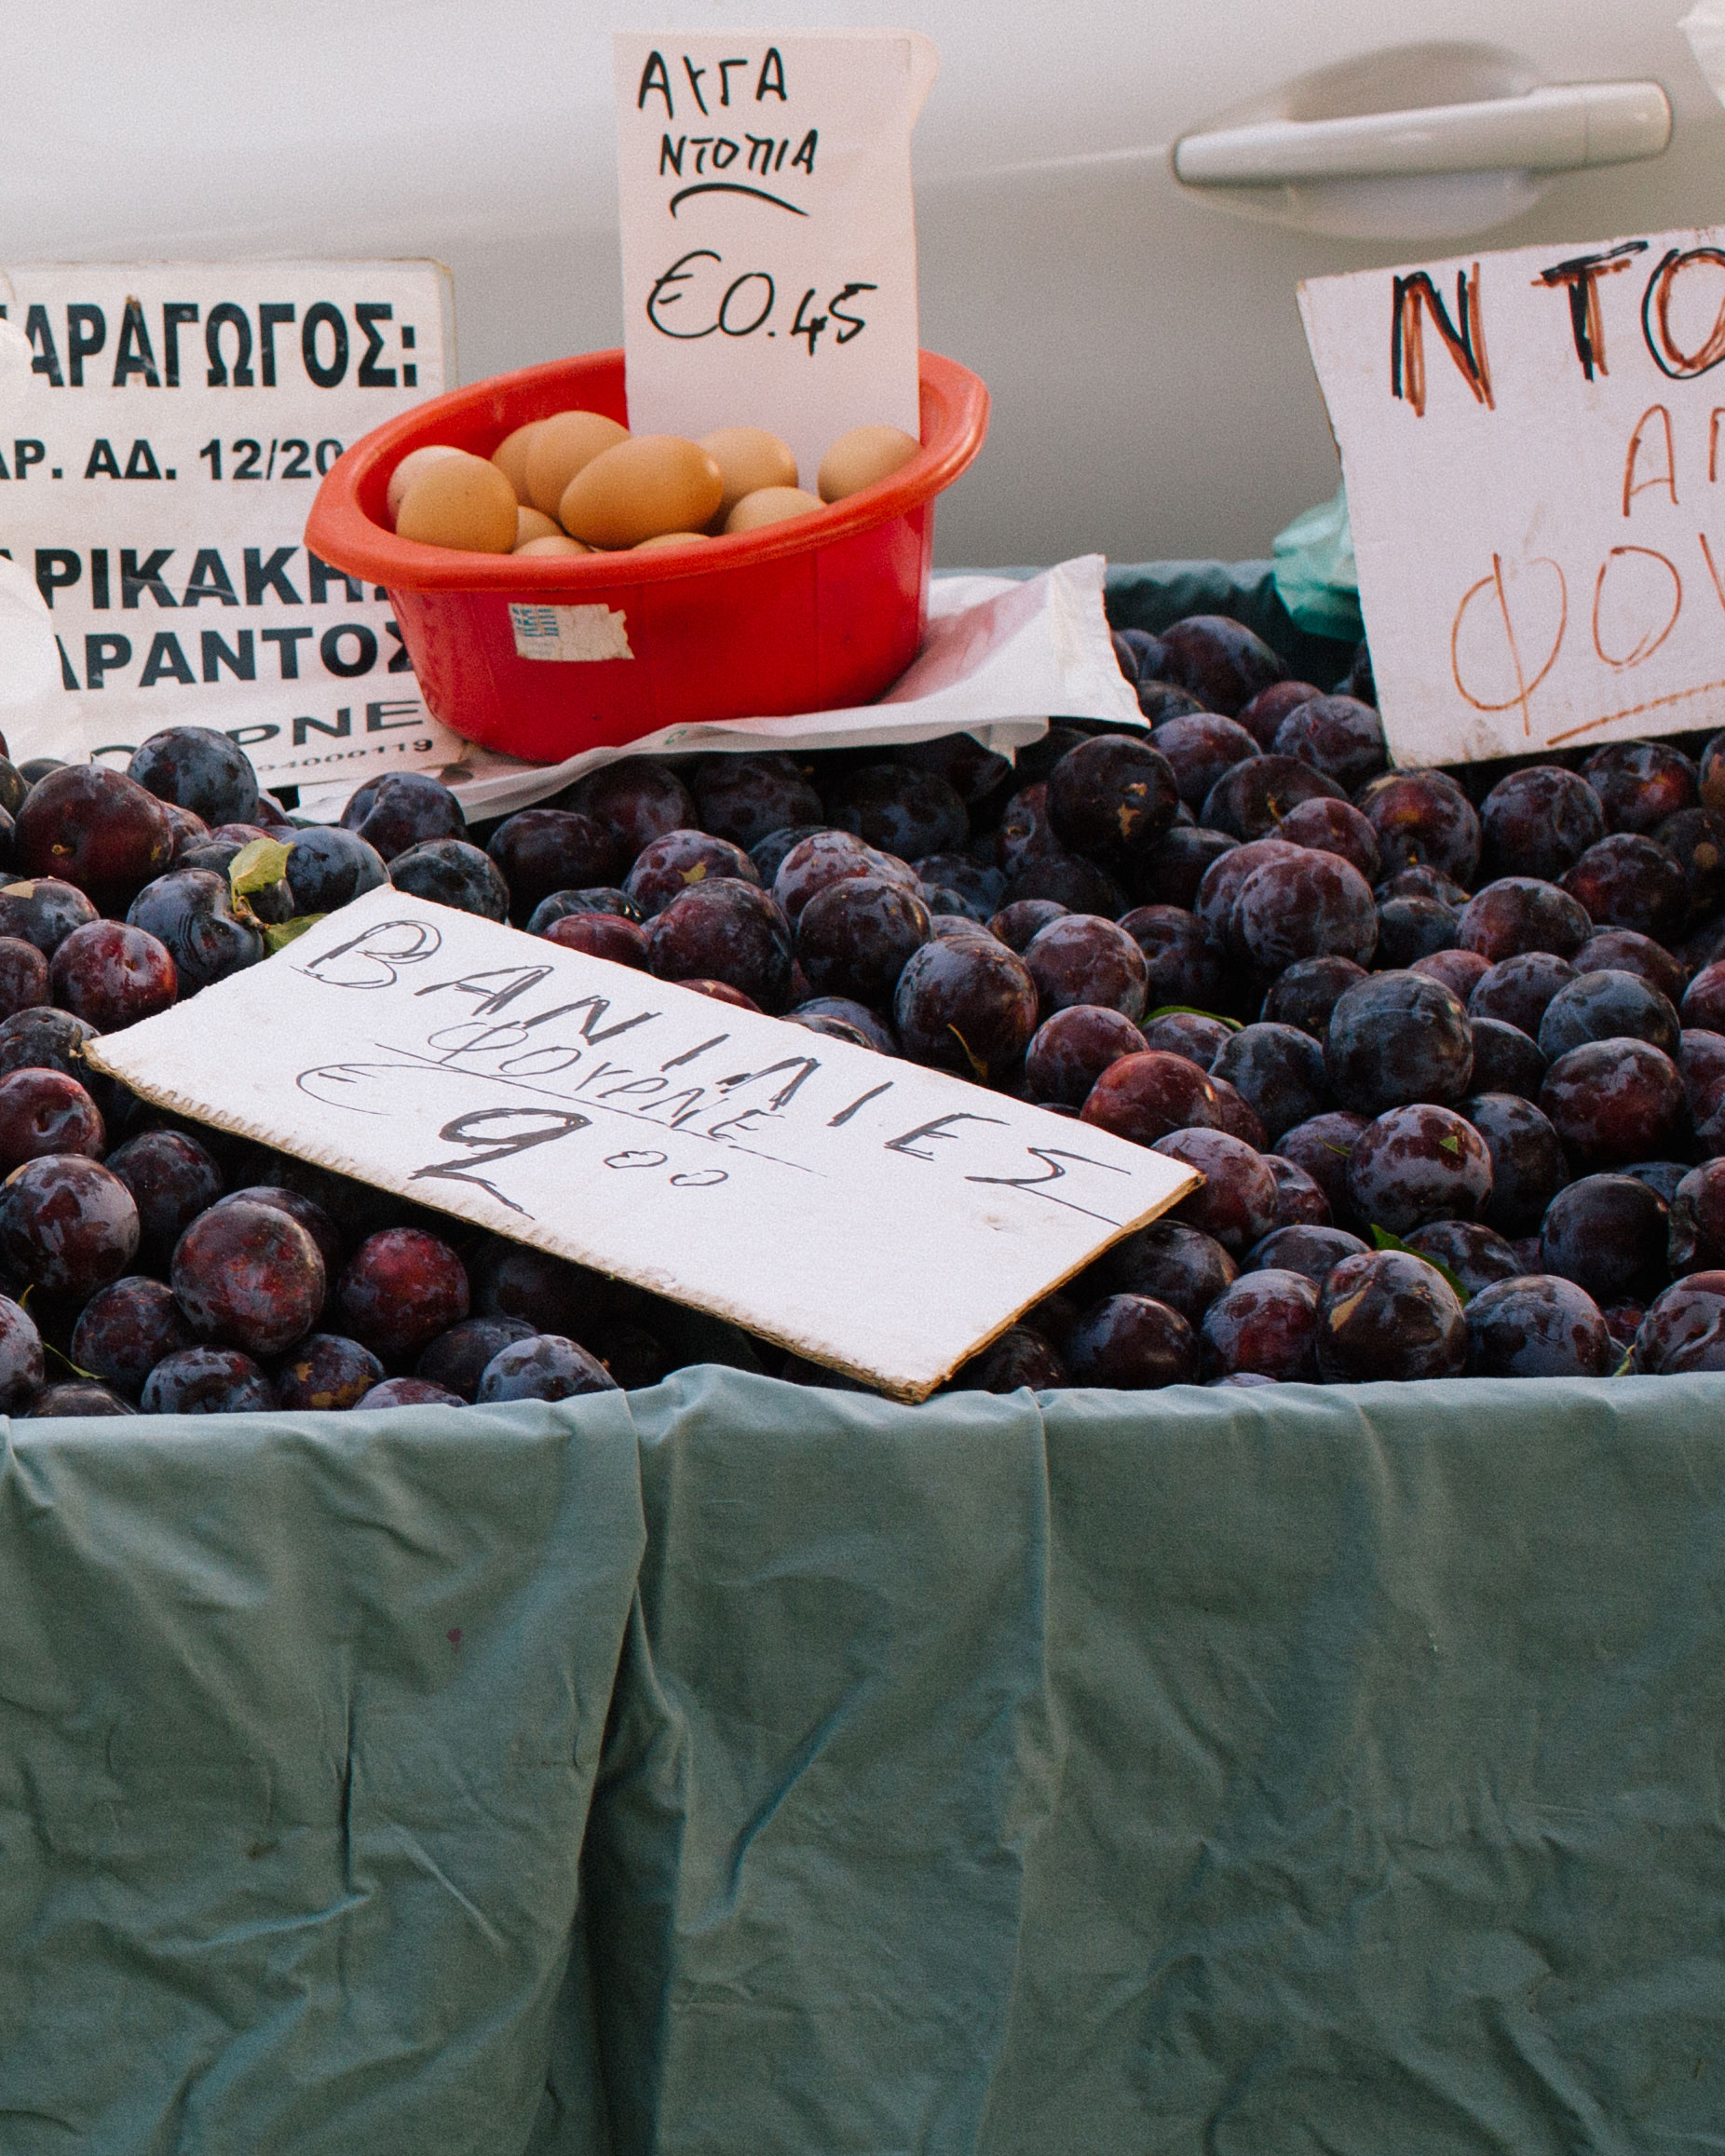 ΑΥΓΑ
ΝΤΟΠΙΑ
€0.45
ΑΡΑΓΩΓΟΣ:
ΑΡ. ΑΔ. 12/20
ΑΡΙΚΑΚΗΣ
ΑΡΑΝΤΟΣ
ΟΥΡΝΕ
04000119
ΝΤΟ
ΑΠ
ΦΟΥ
ΒΑΝΙΛΙΕΣ
ΦΟΥΡΝΕ
€ 2 00